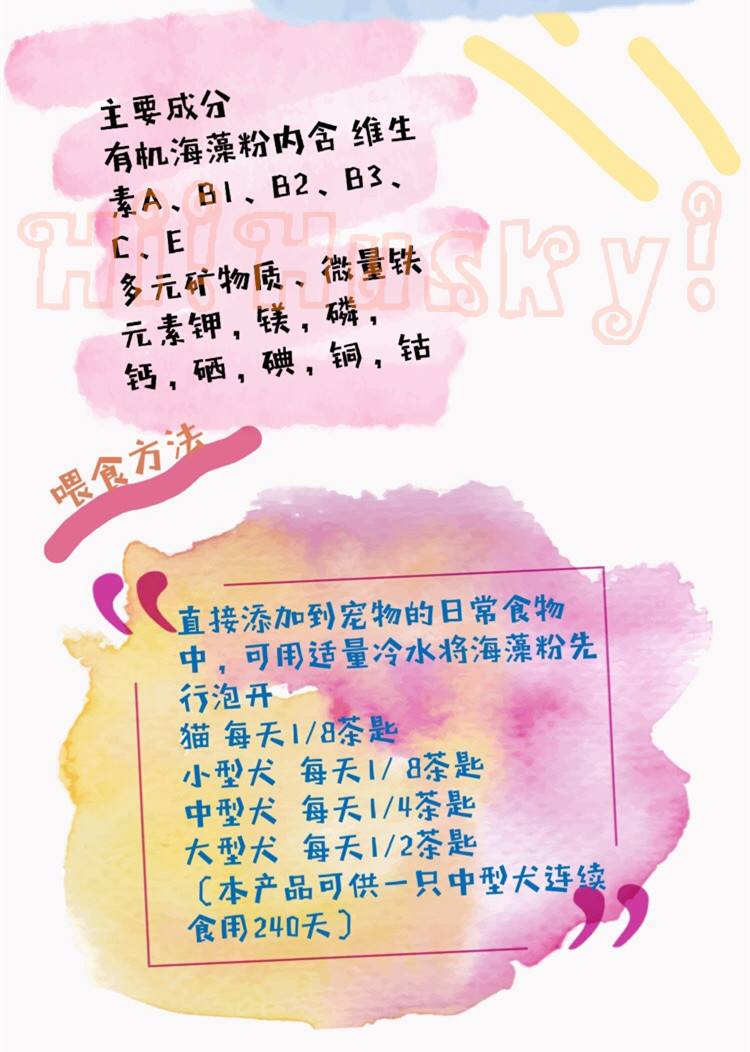 主要成分
有机海藻粉内含 维生
素A、B1、B2、B3、
C、E
多元矿物质、微量铁
元素钾，镁，磷，
钙，硒，碘，铜，钴
Hi! Husky!
喂食方法
直接添加到宠物的日常食物
中，可用适量冷水将海藻粉先
行泡开
猫 每天1/8茶匙
小型犬 每天1/ 8茶匙
中型犬 每天1/4茶匙
大型犬 每天1/2茶匙
（本产品可供一只中型犬连续
食用240天）